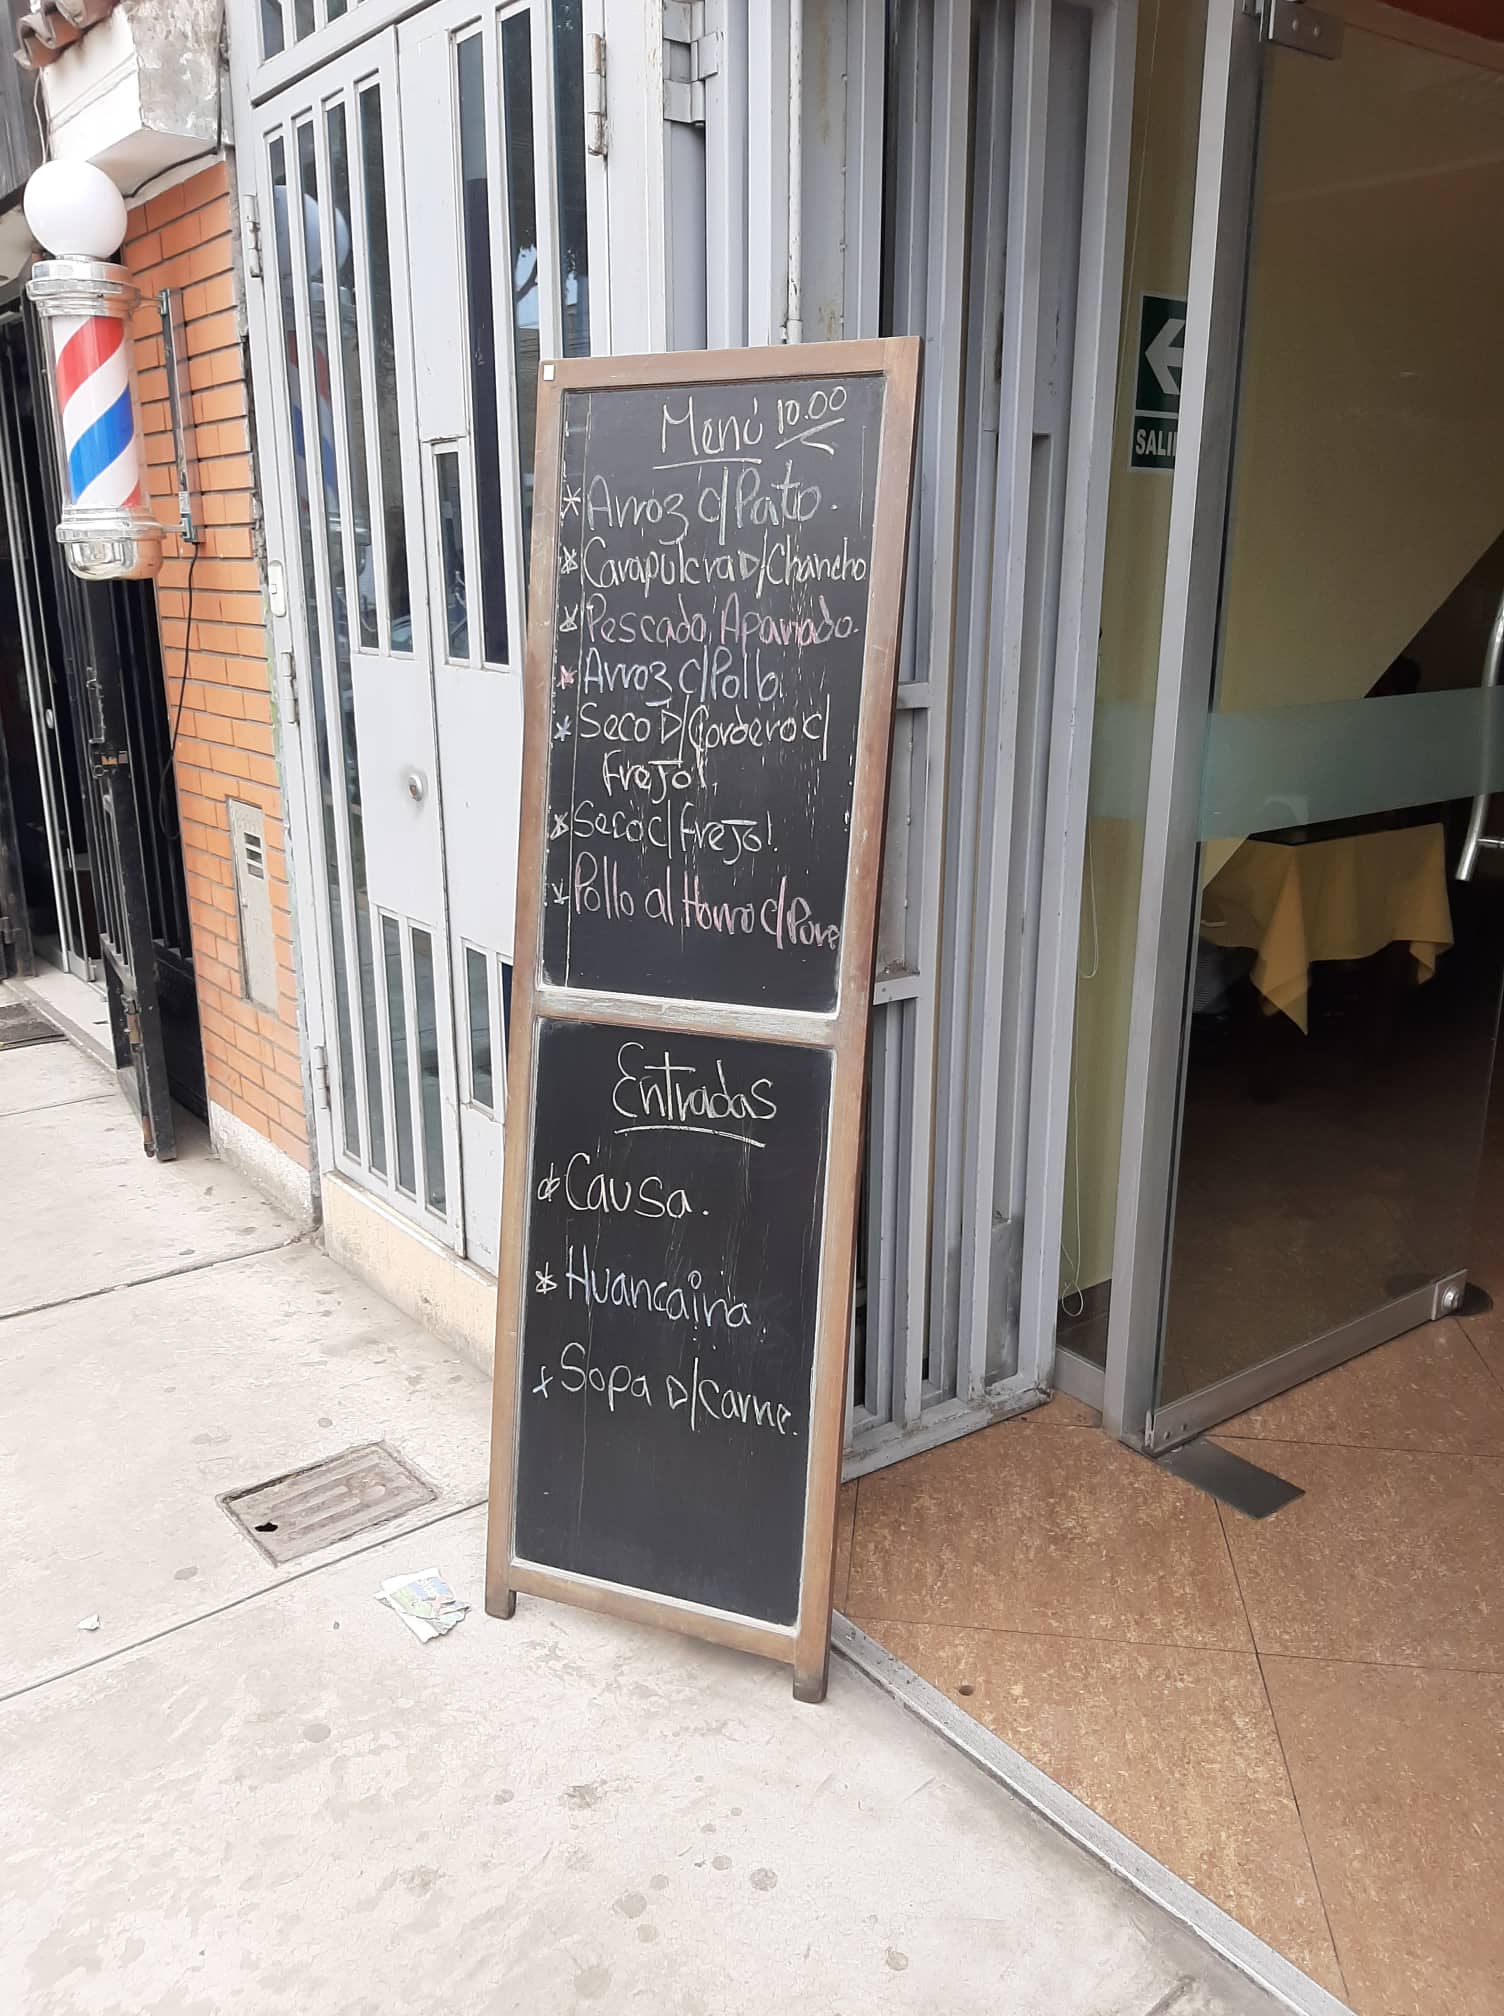 Menú 10.00
* Arroz c/Pato.
* Carapulcra D/Chancho
* Pescado Apanado.
* Arroz c/Pollo
* Seco D/Cordero c/
Frejol.
* Seco c/Frejol.
* Pollo al Horno c/Pure
Entradas
* Causa.
* Huancaina.
* Sopa D/Carne.
SALI